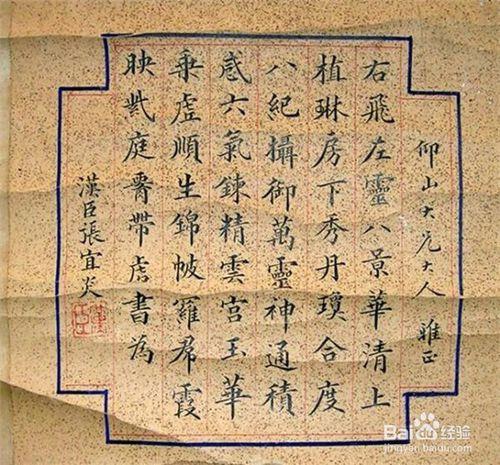 仰山大兄大人 雅正
右飛左靈八景華清上
植琳房下秀丹瓊合度
八紀攝御萬靈神通積
感六氣鍊精雲宮玉華
乘虛順生錦帔羅帬霞
映紫庭帶虎書為
漢臣張宜炎
Baidu 经验
jingyan.baidu.com